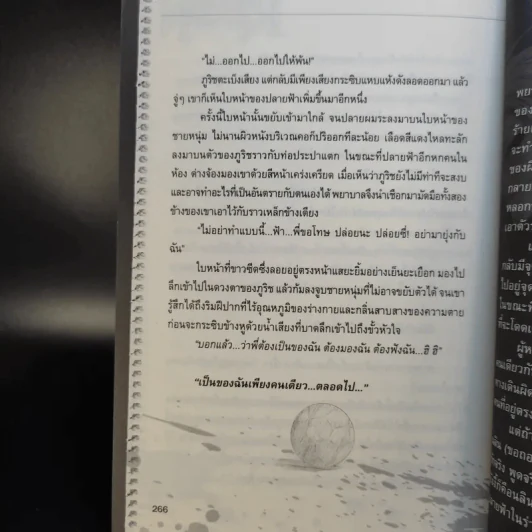 "ไม่...ออกไป...ออกไปให้พ้น!"
ภูริชตะเบ็งเสียง แต่กลับมีเพียงเสียงกระซิบแหบแห้งดังลอดออกมา แล้ว
จู่ๆ เขาก็เห็นใบหน้าของปลายฟ้าเพิ่มขึ้นมาอีกหนึ่ง
ครั้งนี้ใบหน้านั้นขยับเข้ามาใกล้ จนปลายผมระลงมาบนใบหน้าของ
ชายหนุ่ม ไม่นานผิวหนังบริเวณคอก็ปริออกทีละน้อย เลือดสีแดงไหลทะลัก
ลงมาบนตัวของภูริชราวกับท่อประปาแตก ในขณะที่ปลายฟ้าอีกหกคนใน
ห้อง ต่างจ้องมองเขาด้วยสีหน้าเคร่งเครียด เมื่อเห็นว่าภูริชยังไม่มีท่าที่จะสงบ
และอาจทำอะไรที่เป็นอันตรายกับตนเองได้ พยาบาลจึงนำเชือกมามัดมือทั้งสอง
ข้างของเขาเอาไว้กับราวเหล็กข้างเตียง
"ไม่อย่าทำแบบนี้...ฟ้า...พี่ขอโทษ ปล่อยนะ ปล่อยซี่! อย่ามายุ่งกับ
ฉัน"
ใบหน้าที่ขาวซีดซึ่งลอยอยู่ตรงหน้าแสยะยิ้มอย่างเย็นยะเยือก มองไป
ลึกเข้าไปในดวงตาของภูริช แล้วก้มลงจูบชายหนุ่มที่ไม่อาจขยับตัวได้ จนเขา
รู้สึกได้ถึงริมฝีปากที่ไร้อุณหภูมิของร่างกายและกลิ่นสาบสางของความตาย
ก่อนจะกระซิบข้างหูด้วยน้ำเสียงที่บาดลึกเข้าไปถึงขั้วหัวใจ
"บอกแล้ว...ว่าพี่ต้องเป็นของฉัน ต้องมองฉัน ต้องฟังฉัน...ฮิ ฮิ"
"เป็นของฉันเพียงคนเดียว...ตลอดไป..."
266